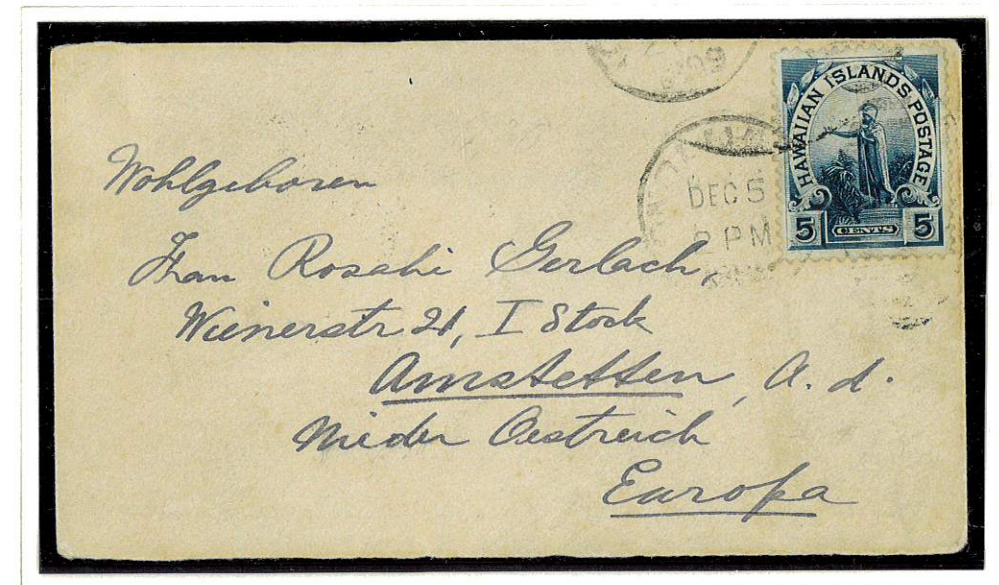 HAWAIIAN ISLANDS POSTAGE
5 CENTS 5
DEC 5
2 PM
Wohlgeboren
Frau Rosahi Gerlach,
Wienerstr 21, I Stock
Amstetten, a. d.
Nieder Oestreich
Europa